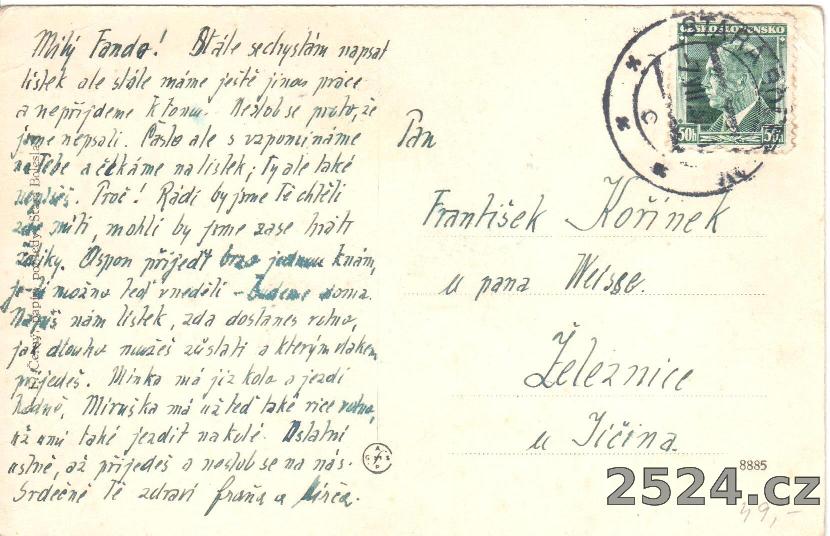 Milý Fando! Stále se chystám napsat
lístek ale stále máme ještě jinou práce
a nepřijdeme k tomu. Nezlob se proto, že
jsme nepsali. Často ale s vzpomínáme
na Tebe a čekáme na lístek; Ty ale také
Proč! Rádi by jsme Tě chtěli
zde míti, mohli by jsme zase hráti
Aspon přijeďt brzo jednou k nám,
je-li možno teď v neděli - budeme doma.
Napiš nám lístek, zda dostaneš volno,
jak dlouho můžeš zůstati a kterým vlakem
přijedeš. Minka má již kolo a jezdí
hodně, Miruška má už teď také více volno,
už umí také jezdit na kole. Ostatní
ustně, až přijedeš a nezlob se na nás.
Srdečně Tě zdraví Fraňa a
Pan
František Kořínek
u pana Weisse.
Železnice
u Jičína.
ČESKOSLOVENSKO
50h
STARÁ BOL
8885
49,-
2524.cz